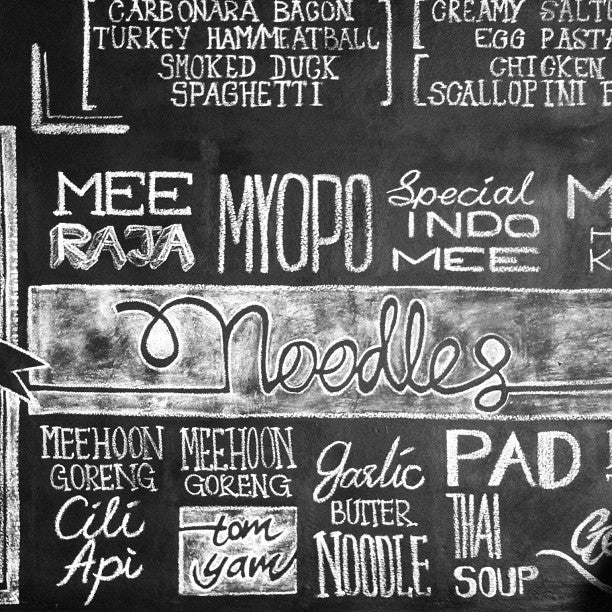 CARBONARA BACON
TURKEY HAM/MEATBALL
SMOKED DUCK
SPAGHETTI
CREAMY
EGG
CHICKEN
SCALLOPINI
MEE
RAJA
MYOPO
Special
INDO
MEE
Noodles
MEEHOON
GORENG
Cili
Api
MEEHOON
GORENG
tom
yam
garlic
BUTTER
NOODLE
PAD
THAI
SOUP